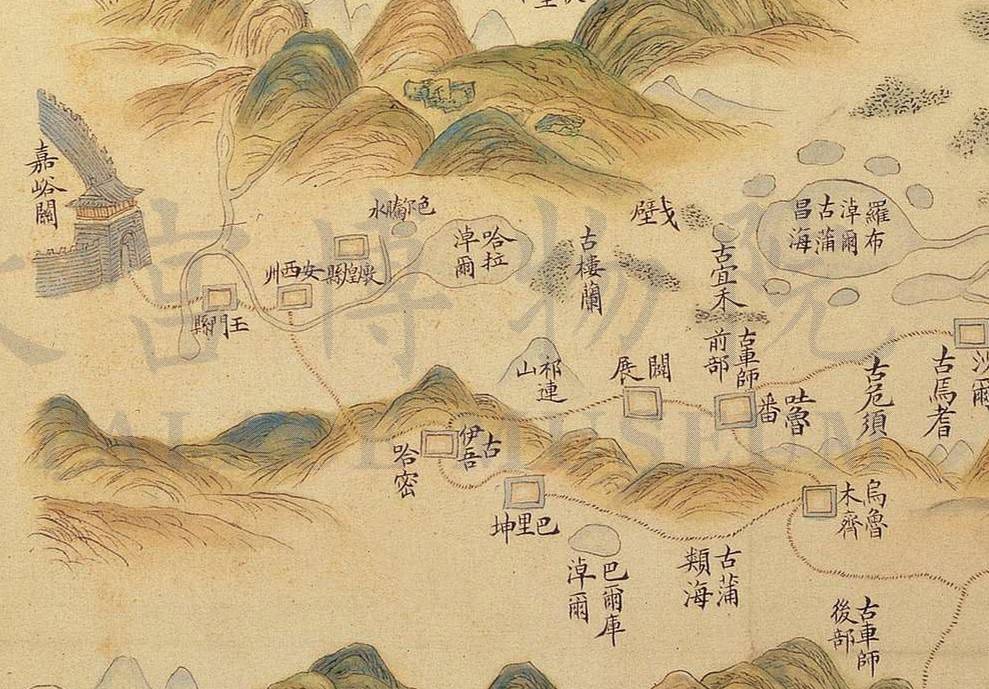 嘉峪關
色尔騰水
燉煌縣
安西州
玉門縣
哈拉
淖爾
古樓蘭
戈壁
古宜禾
羅布
淖爾
古蒲
昌海
古車師
前部
吐魯
番
闢展
祁連
山
古危須
古焉耆
古
伊吾
哈密
巴里坤
巴爾庫
淖爾
古蒲
類海
烏魯
木齊
古車師
後部
宮博物院
AL MUSEUM